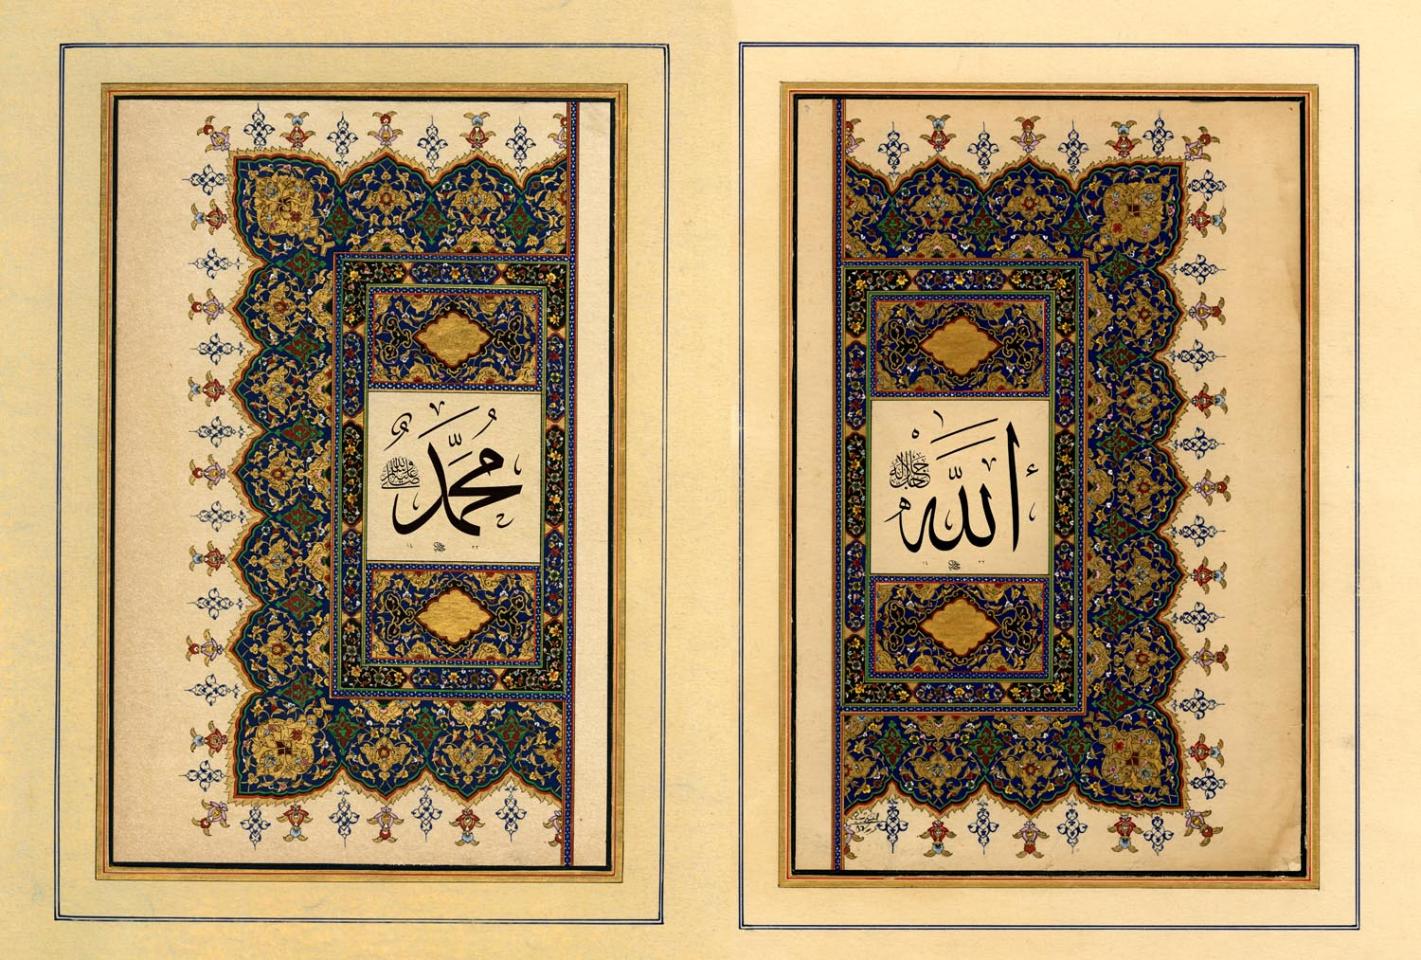 الله
جل جلاله
مُحَمَّد
صلى الله عليه وسلم